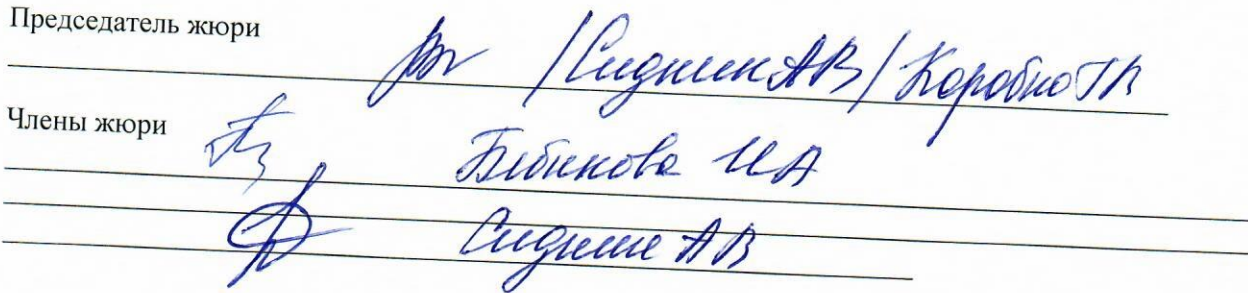 Председатель жюри
/Сидник АВ/ Коробко ГВ
Члены жюри
Бибикова ИА
Сидник АВ